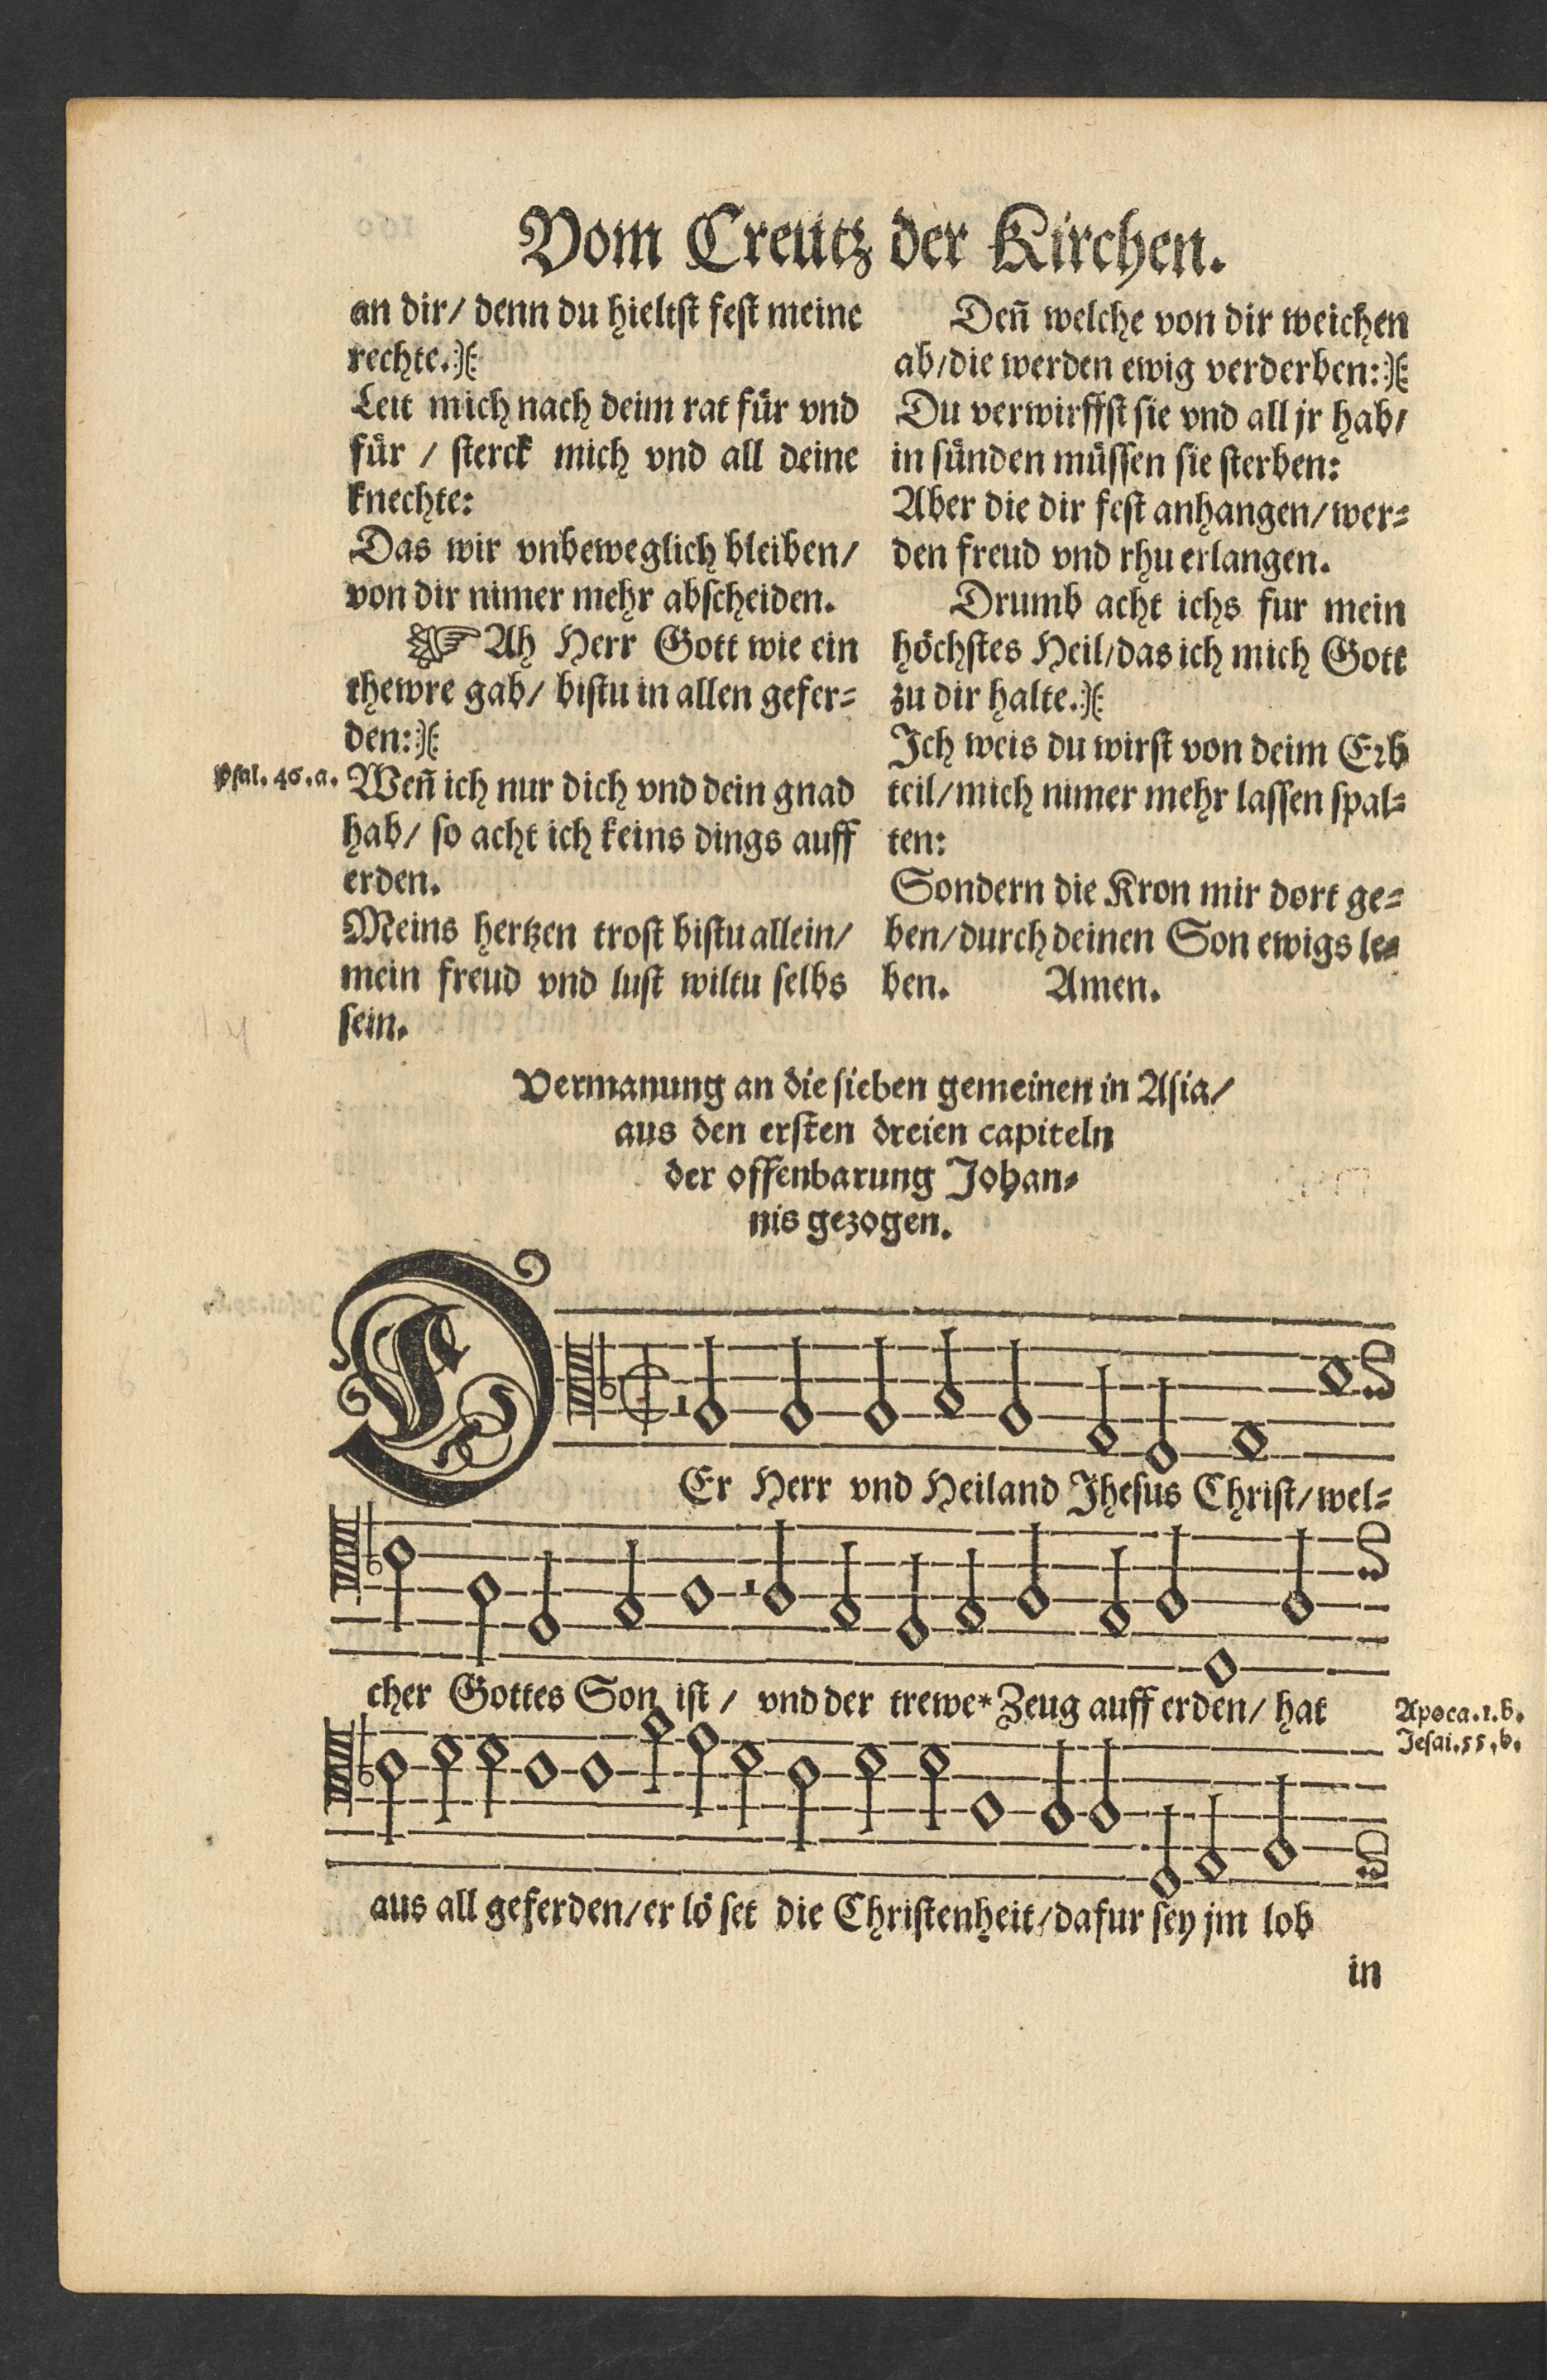 Vom Creutz der Kirchen.
an dir/ denn du hieltst fest meine
rechte.
Leit mich nach deim rat für vnd
für / sterck mich vnd all deine
knechte:
Das wir vnbeweglich bleiben/
von dir nimer mehr abscheiden.
Ah Herr Gott wie ein
thewre gab/ bistu in allen gefer-
den:
Psal. 46. a.
Weñ ich nur dich vnd dein gnad
hab/ so acht ich keins dings auff
erden.
Meins hertzen trost bistu allein/
mein freud vnd lust wiltu selbs
sein.
Deñ welche von dir weichen
ab/die werden ewig verderben:
Du verwirffst sie vnd all jr hab/
in sünden müssen sie sterben:
Aber die dir fest anhangen/wer-
den freud vnd rhu erlangen.
Drumb acht ichs fur mein
höchstes Heil/das ich mich Gott
zu dir halte.
Ich weis du wirst von deim Erb
teil/mich nimer mehr lassen spal-
ten:
Sondern die Kron mir dort ge-
ben/durch deinen Son ewigs le-
ben. Amen.
Vermanung an die sieben gemeinen in Asia/
aus den ersten dreien capiteln
der offenbarung Johan-
nis gezogen.
DEr Herr vnd Heiland Jhesus Christ/wel-
cher Gottes Son ist / vnd der trewe* Zeug auff erden/ hat
Apoca.1.b.
Jesai.55.b.
aus all geferden/er lö set die Christenheit/dafur sey jm lob
in